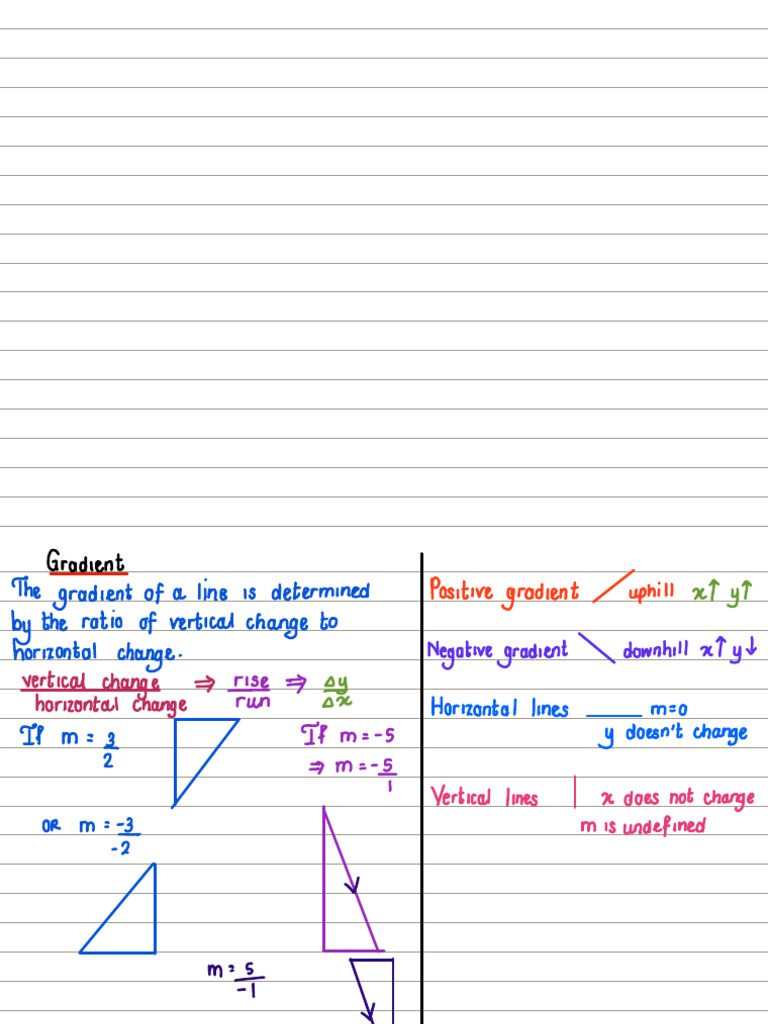 Gradient
The gradient of a line is determined
by the ratio of vertical change to
horizontal change.
vertical change ⇒ rise ⇒ Δy
horizontal change run Δx
If m = 3
2
If m = -5
⇒ m = -5
1
OR m = -3
-2
m = 5
-1
Positive gradient uphill x↑ y↑
Negative gradient downhill x↑ y↓
Horizontal lines m=0
y doesn't change
Vertical lines x does not change
m is undefined